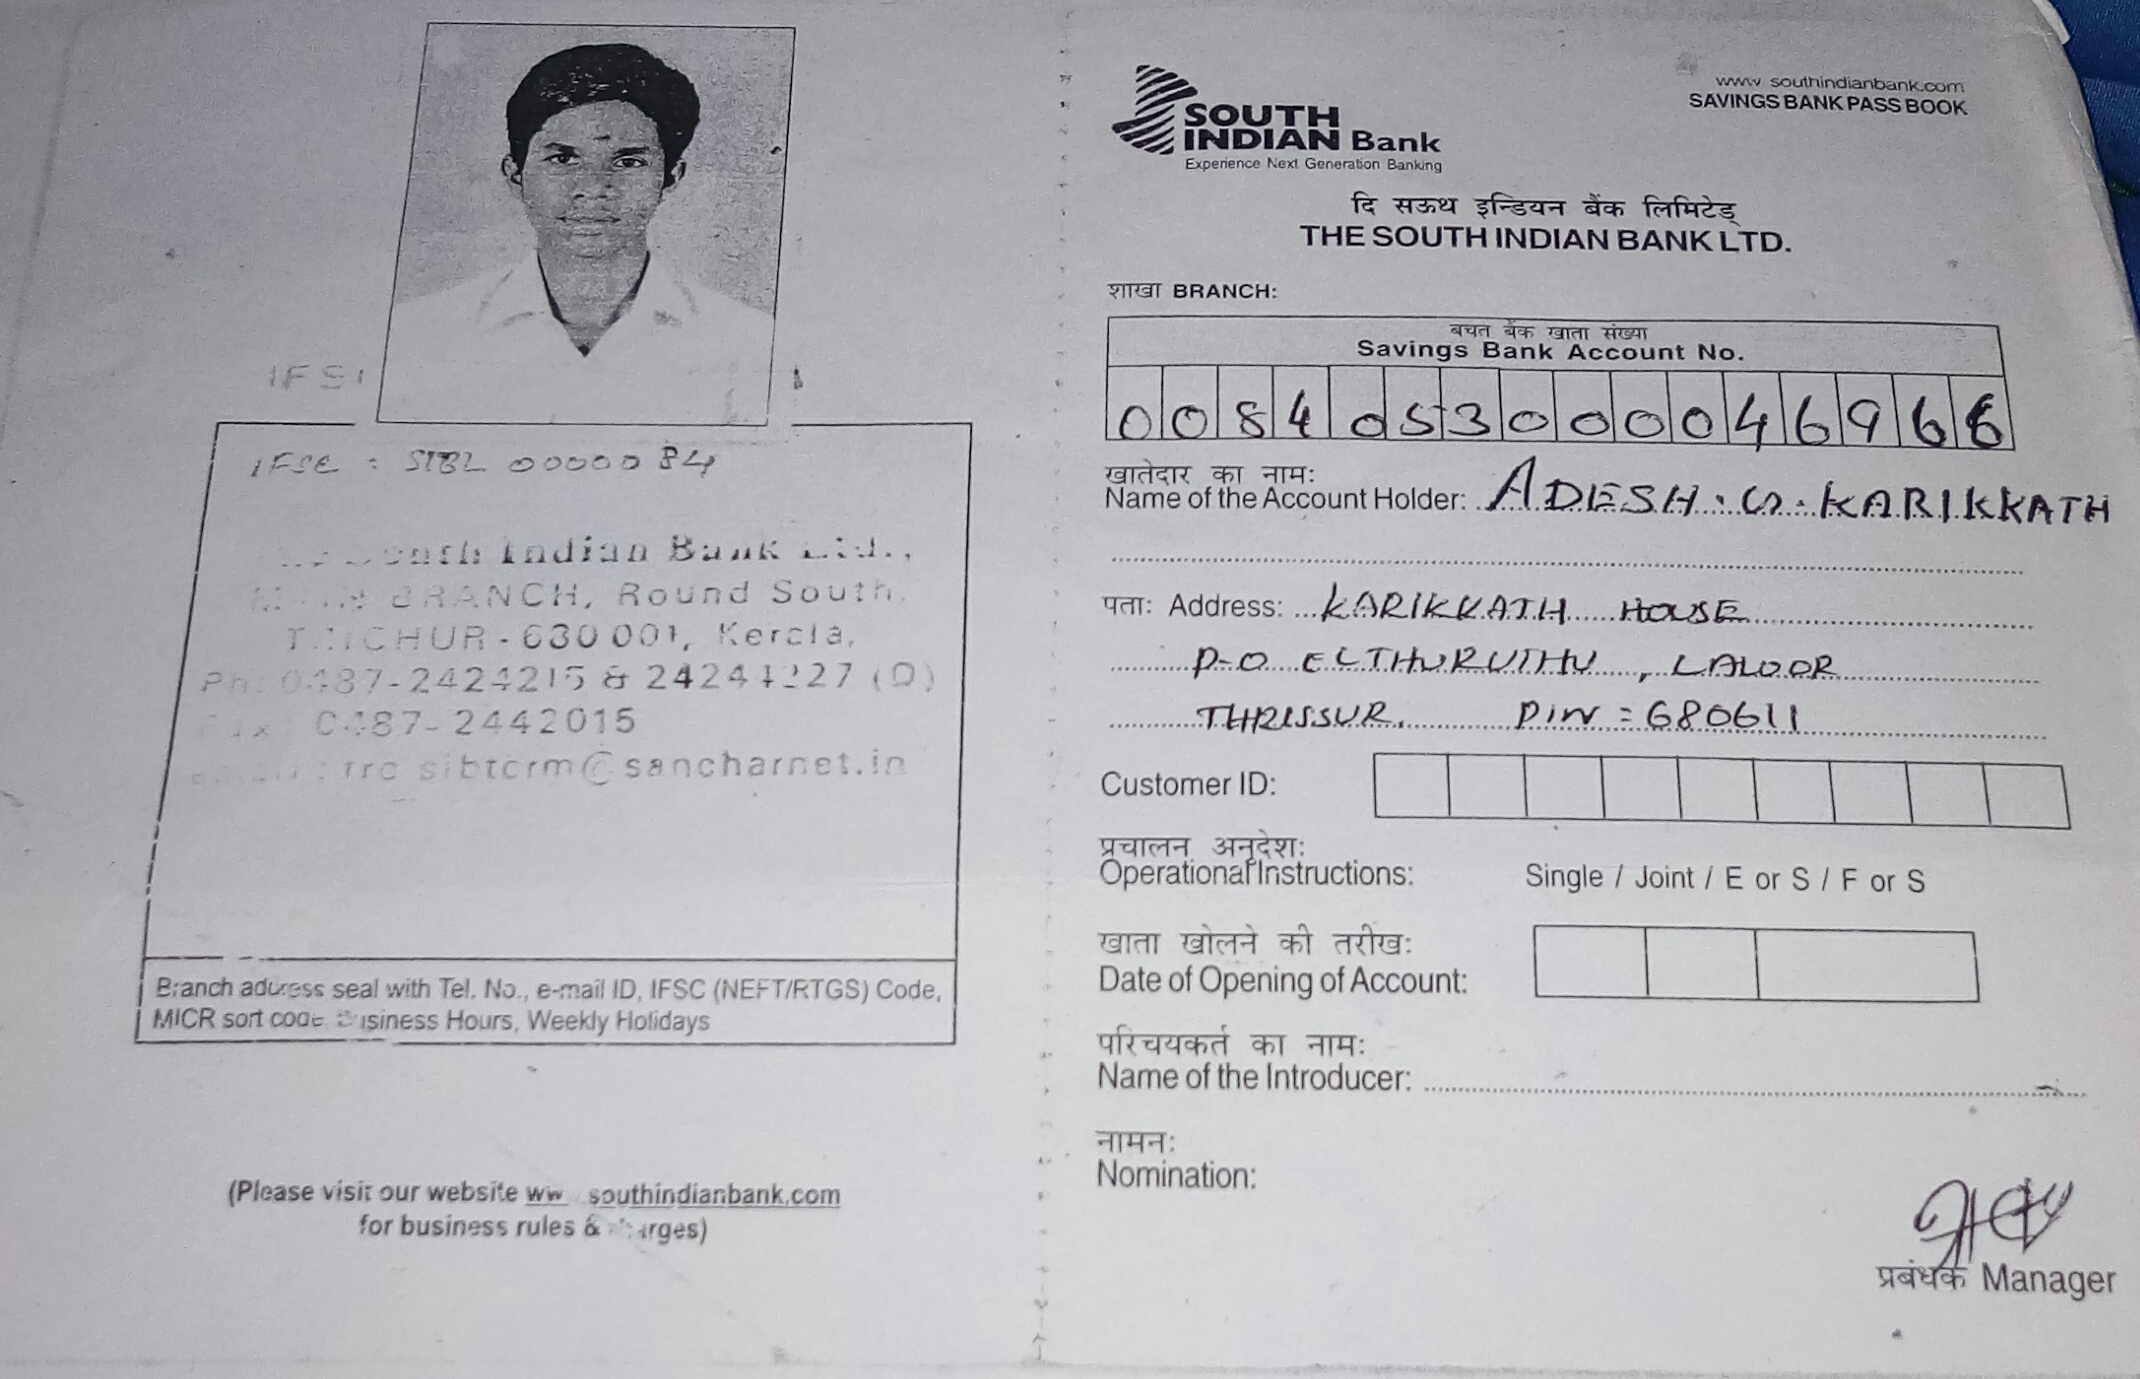 IFS
IFSC : SIBL 0000084
South Indian Bank Ltd.,
BRANCH, Round South,
- 680 001, Kerala,
Ph: 0487-2424215 & (O)
0487-2442015
@sancharnet.in
Branch address seal with Tel. No., e-mail ID, IFSC (NEFT/RTGS) Code,
MICR sort code, Business Hours, Weekly Holidays
(Please visit our website southindianbank.com
for business rules & charges)
www southindianbank.com
SAVINGS BANK PASS BOOK
SOUTH
INDIAN Bank
Experience Next Generation Banking
दि सऊथ इन्डियन बैंक लिमिटेड्
THE SOUTH INDIAN BANK LTD.
शाखा BRANCH:
बचत बैंक खाता संख्या
Savings Bank Account No.
0084053000046966
खातेदार का नाम:
Name of the Account Holder: ADESH. S. KARIKKATH
पता: Address: KARIKKATH HOUSE
P-O ELTHURUTHU, LALOOR
THRISSUR. PIN = 680611
Customer ID:
प्रचालन अनुदेश:
Operational Instructions: Single / Joint / E or S / F or S
खाता खोलने की तरीख:
Date of Opening of Account:
परिचयकर्त का नाम:
Name of the Introducer:
नामन:
Nomination:
प्रबंधक Manager